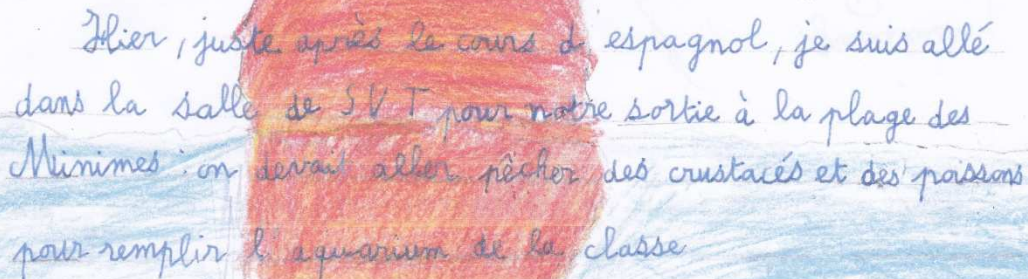 Hier, juste après le cours d'espagnol, je suis allé
dans la salle de SVT pour notre sortie à la plage des
Minimes : on devait aller pêcher des crustacés et des poissons
pour remplir l'aquarium de la classe